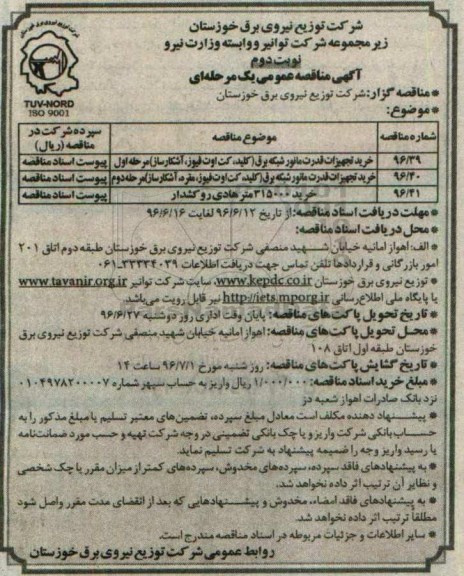 شرکت توزیع نیروی برق خوزستان
زیر مجموعه شرکت توانیر و وابسته وزارت نیرو
نوبت دوم
آگهی مناقصه عمومی یک مرحله‌ای
TUV-NORD
ISO 9001
* مناقصه گزار: شرکت توزیع نیروی برق خوزستان
* موضوع:
شماره مناقصه	موضوع مناقصه	سپرده شرکت در مناقصه (ریال)
۹۶/۳۹	خرید تجهیزات قدرت مانور شبکه برق (کلید، کت اوت فیوز، آشکارساز) مرحله اول	پیوست اسناد مناقصه
۹۶/۴۰	خرید تجهیزات قدرت مانور شبکه برق (کلید، کت اوت فیوز، مقره، آشکارساز) مرحله دوم	پیوست اسناد مناقصه
۹۶/۴۱	خرید ۳۱۵۰۰۰ متر هادی روکشدار	پیوست اسناد مناقصه
* مهلت دریافت اسناد مناقصه: از تاریخ ۹۶/۶/۱۲ لغایت ۹۶/۶/۱۶
* محل دریافت اسناد مناقصه:
* الف: اهواز امانیه خیابان شهید منصفی شرکت توزیع نیروی برق خوزستان طبقه دوم اتاق ۲۰۱
امور بازرگانی و قراردادها تلفن تماس جهت دریافت اطلاعات ۳۳۳۳۴۰۳۹-۰۶۱
* توزیع نیروی برق خوزستان www.kepdc.co.ir، سایت شرکت توانیر www.tavanir.org.ir
یا پایگاه ملی اطلاع‌رسانی http://iets.mporg.ir نیز قابل رویت می‌باشد.
* تاریخ تحویل پاکت‌های مناقصه: پایان وقت اداری روز دوشنبه ۹۶/۶/۲۷
* محل تحویل پاکت‌های مناقصه: اهواز امانیه خیابان شهید منصفی شرکت توزیع نیروی برق
خوزستان طبقه اول اتاق ۱۰۸
* تاریخ گشایش پاکت‌های مناقصه: روز شنبه مورخ ۹۶/۷/۱ ساعت ۱۴
* مبلغ خرید اسناد مناقصه: ۱/۰۰۰/۰۰۰ ریال واریز به حساب سپهر شماره ۰۱۰۴۹۷۸۲۰۰۰۰۷
نزد بانک صادرات اهواز شعبه دز
* پیشنهاد دهنده مکلف است معادل مبلغ سپرده، تضمین‌های معتبر تسلیم یا مبلغ مذکور را به
حساب بانکی شرکت واریز و یا چک بانکی تضمینی در وجه شرکت تهیه و حسب مورد ضمانت‌نامه
یا رسید واریز وجه را ضمیمه پیشنهاد به شرکت تسلیم نماید.
* به پیشنهادهای فاقد سپرده، سپرده‌های مخدوش، سپرده‌های کمتر از میزان مقرر یا چک شخصی
و نظایر آن ترتیب اثر داده نخواهد شد.
* به پیشنهادهای فاقد امضاء، مخدوش و پیشنهادهایی که بعد از انقضای مدت مقرر واصل شود
مطلقاً ترتیب اثر داده نخواهد شد.
* سایر اطلاعات و جزئیات مربوطه در اسناد مناقصه مندرج است.
روابط عمومی شرکت توزیع نیروی برق خوزستان